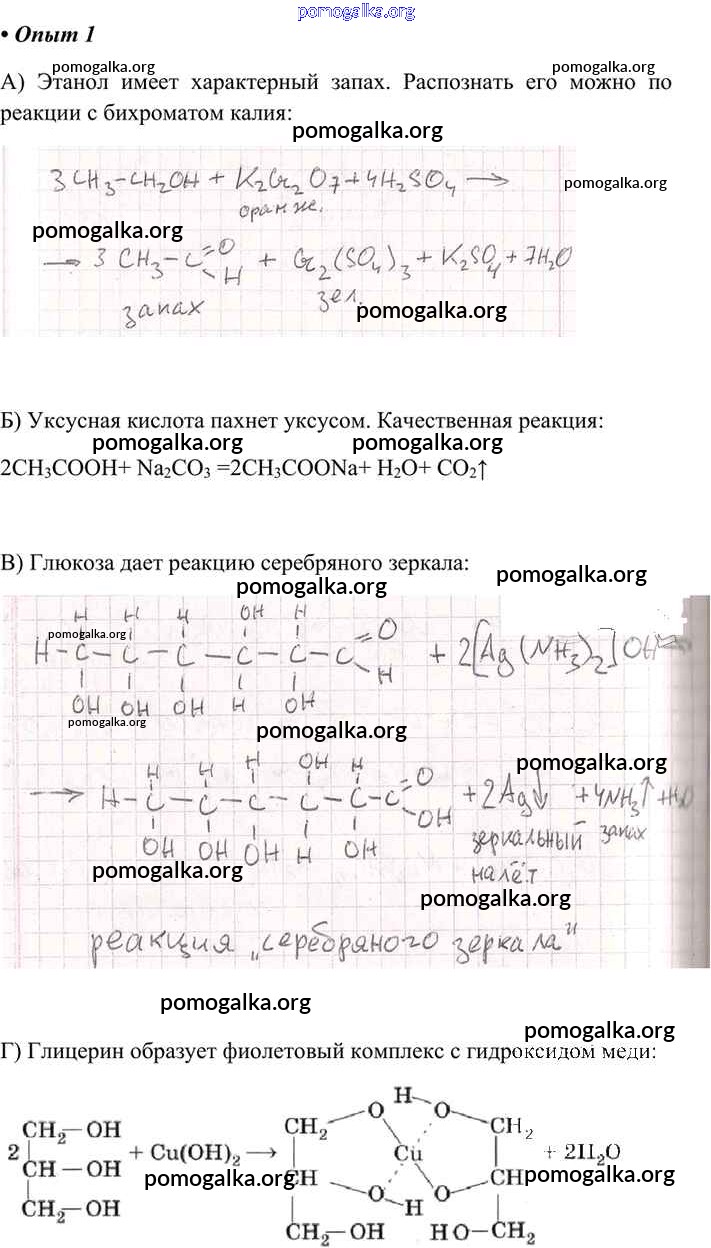 pomogalka.org
• Опыт 1
pomogalka.org pomogalka.org
А) Этанол имеет характерный запах. Распознать его можно по
реакции с бихроматом калия:
pomogalka.org
3CH₃-CH₂OH + K₂Cr₂O₇ + 4H₂SO₄ →
pomogalka.org
оранж.
pomogalka.org
→ 3 CH₃-C=O H + Cr₂(SO₄)₃ + K₂SO₄ + 7H₂O
запах зел.
pomogalka.org
Б) Уксусная кислота пахнет уксусом. Качественная реакция:
pomogalka.org pomogalka.org
2CH₃COOH+ Na₂CO₃ =2CH₃COONa+ H₂O+ CO₂↑
В) Глюкоза дает реакцию серебряного зеркала:
pomogalka.org pomogalka.org
H H H OH H
pomogalka.org
H-C-C-C-C-C-C=O H + 2[Ag(NH₃)₂]OH
OH OH OH H OH
pomogalka.org
pomogalka.org
pomogalka.org
H H H OH H
→ H-C-C-C-C-C-C=O OH + 2Ag↓ + 4NH₃↑ + H₂O
OH OH OH H OH
зеркальный запах
налёт
pomogalka.org
pomogalka.org
реакция „серебряного зеркала"
pomogalka.org
pomogalka.org
Г) Глицерин образует фиолетовый комплекс с гидроксидом меди:
H
O O
CH₂—OH CH₂ CH₂
2 CH—OH + Cu(OH)₂ → Cu + 2H₂O
CH CH
pomogalka.org pomogalka.org
O H O
CH₂—OH CH₂—OH HO—CH₂